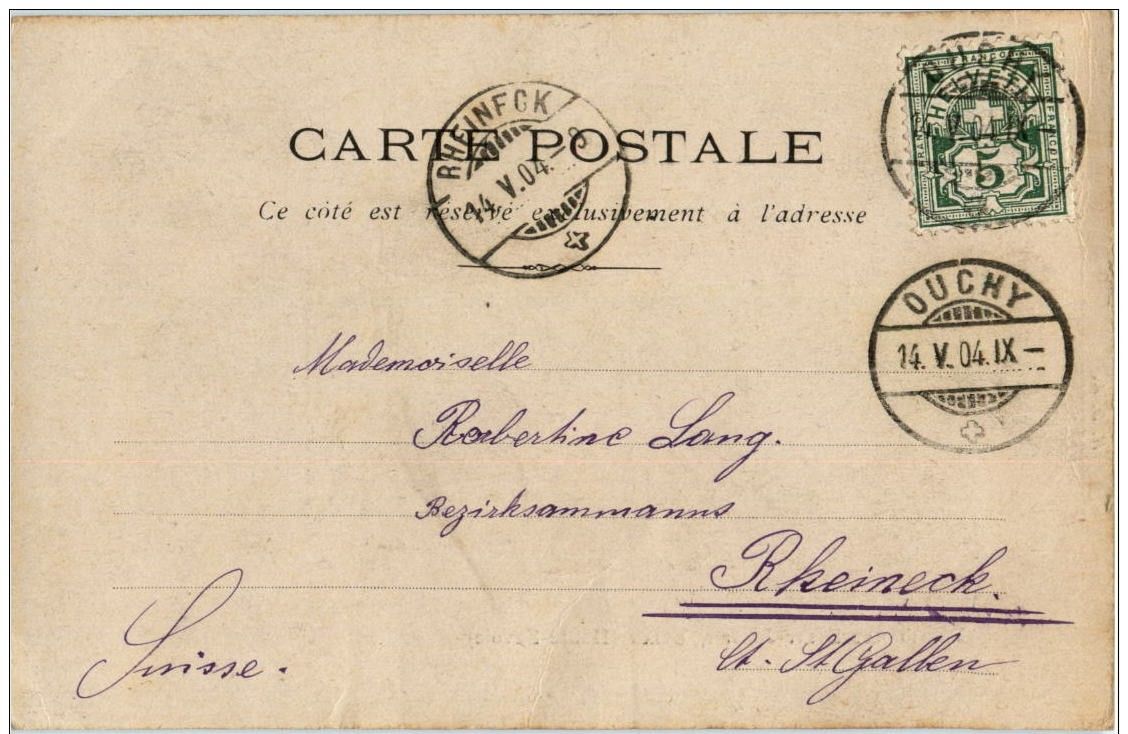 CARTE POSTALE
Ce côté est réservé exclusivement à l'adresse
RHEINECK
14. V. 04. – 8
HELVETIA
FRANCO
5
OUCHY
14. V. 04. IX –
Mademoiselle
Robertine Lang.
Bezirksammanns
Rheineck.
Ct. St Gallen
Suisse.